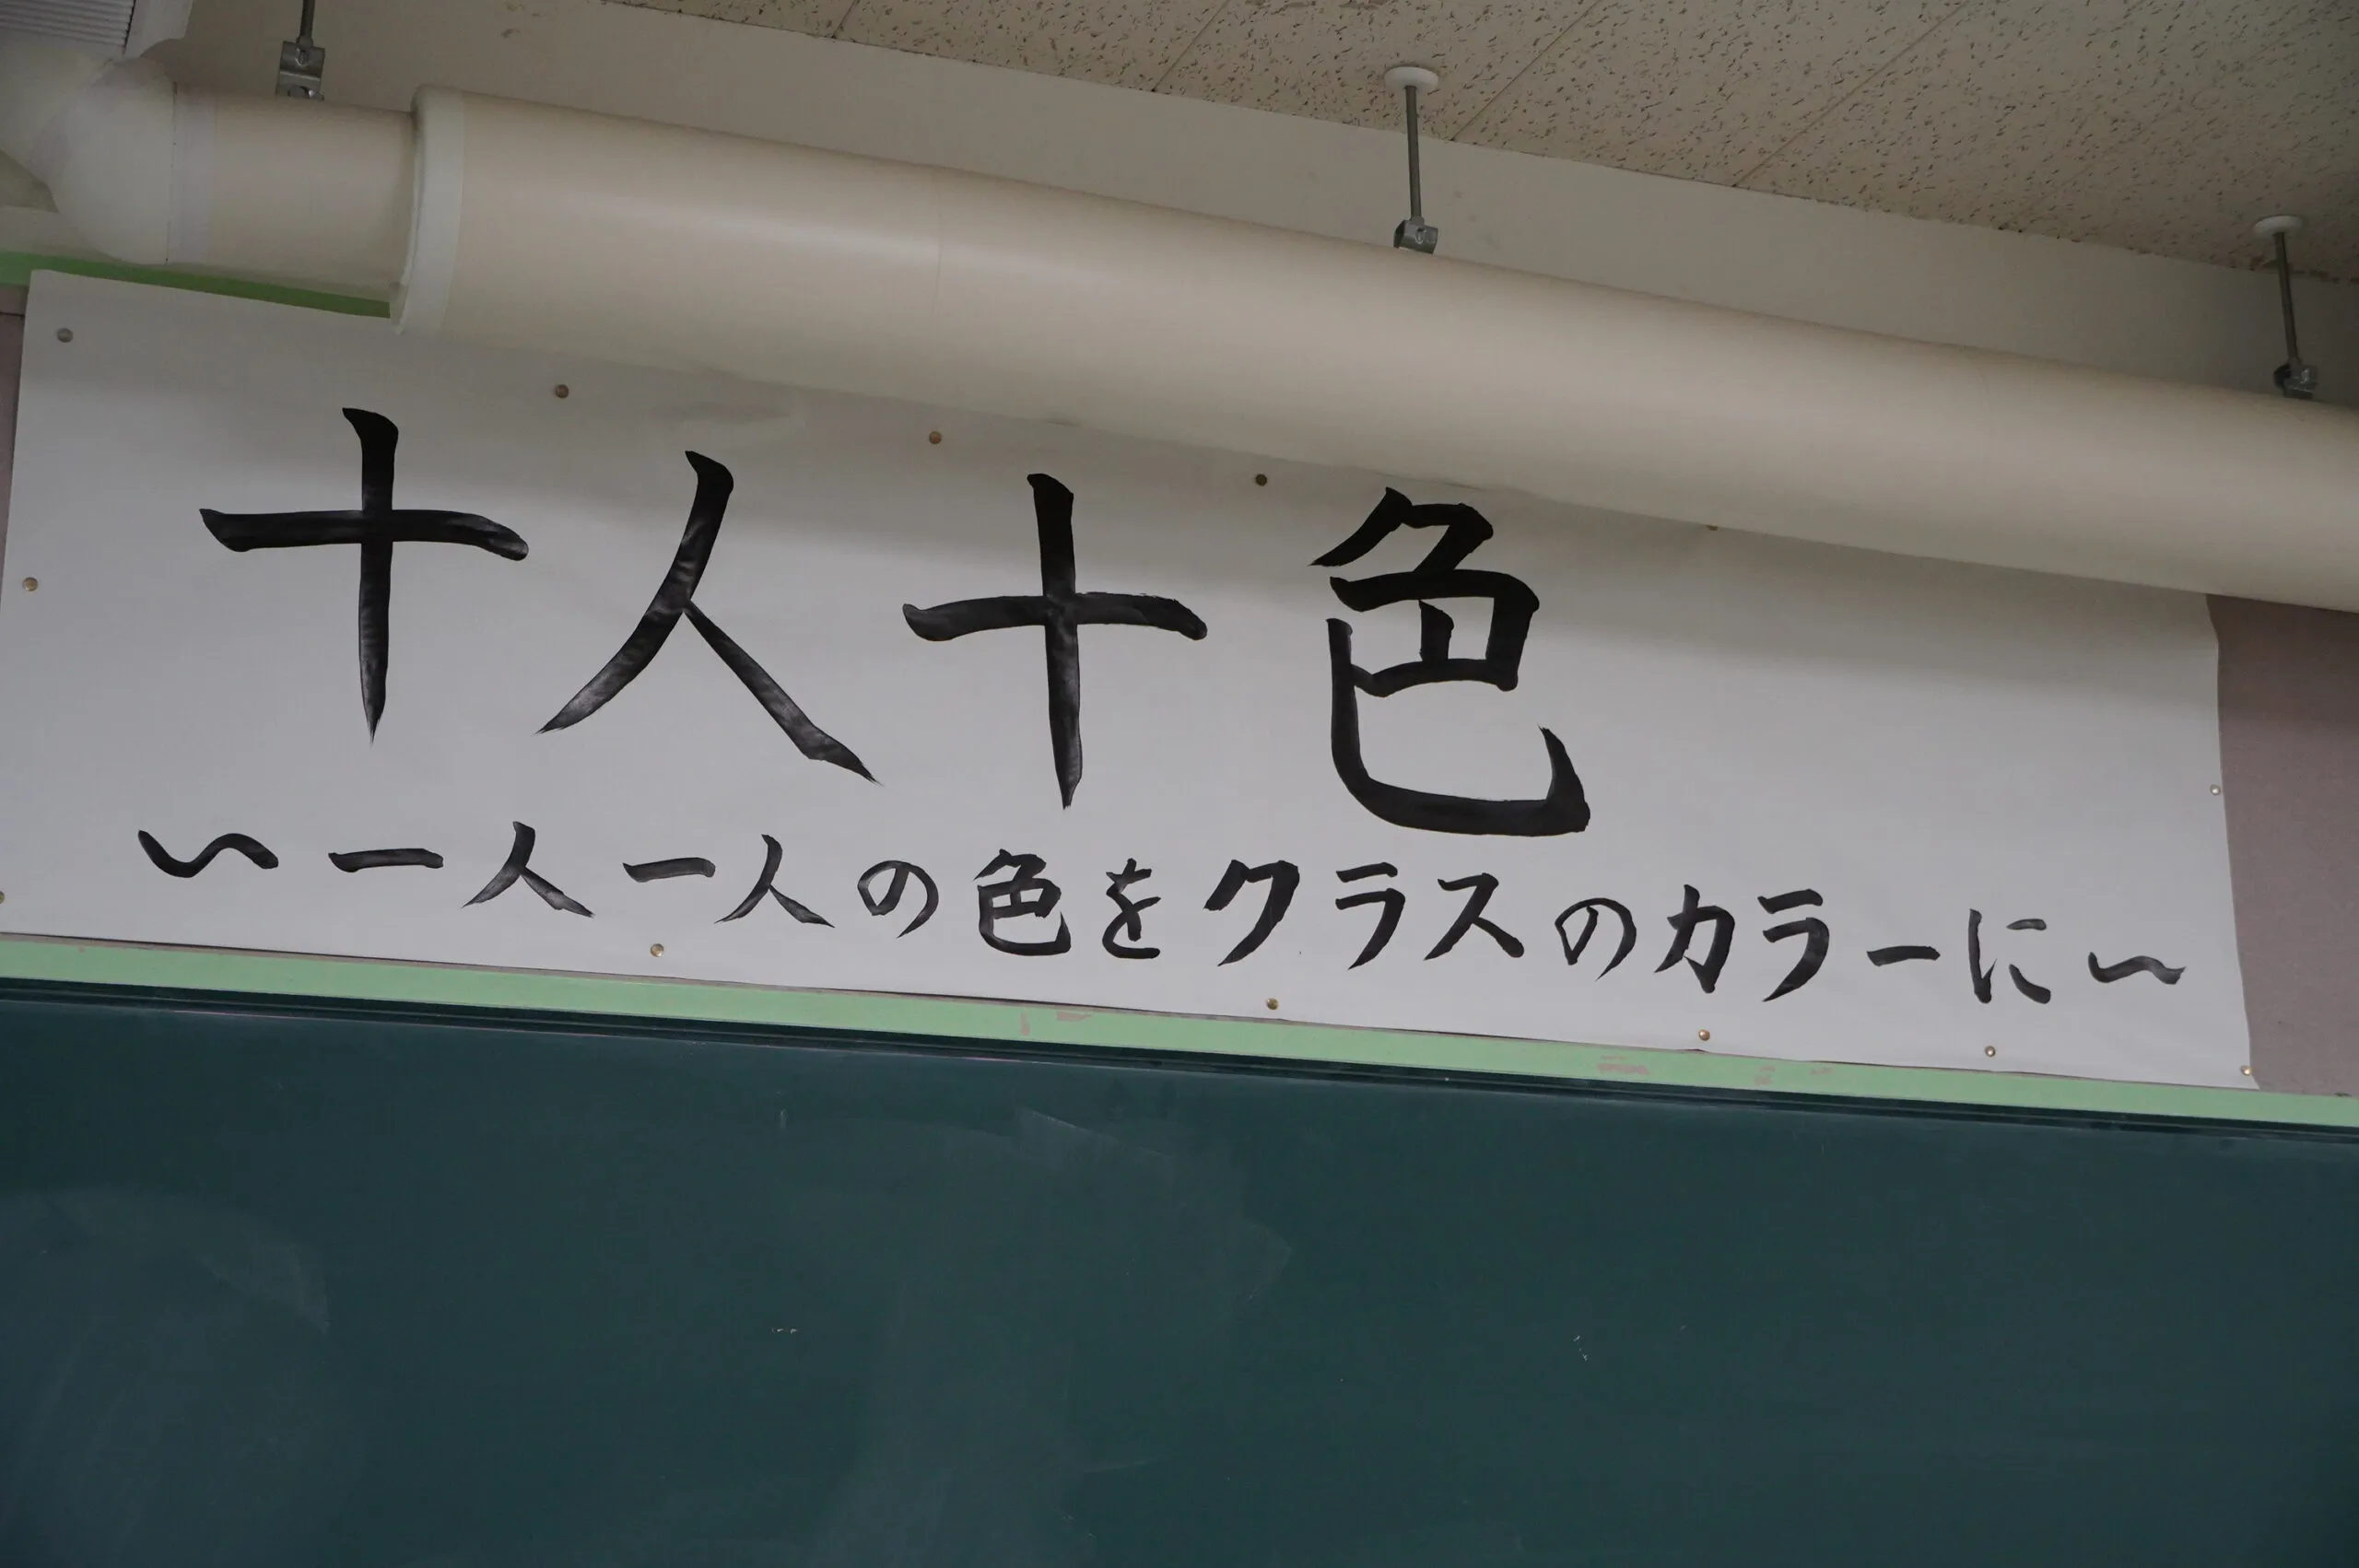 十人十色
〜一人一人の色をクラスのカラーに〜